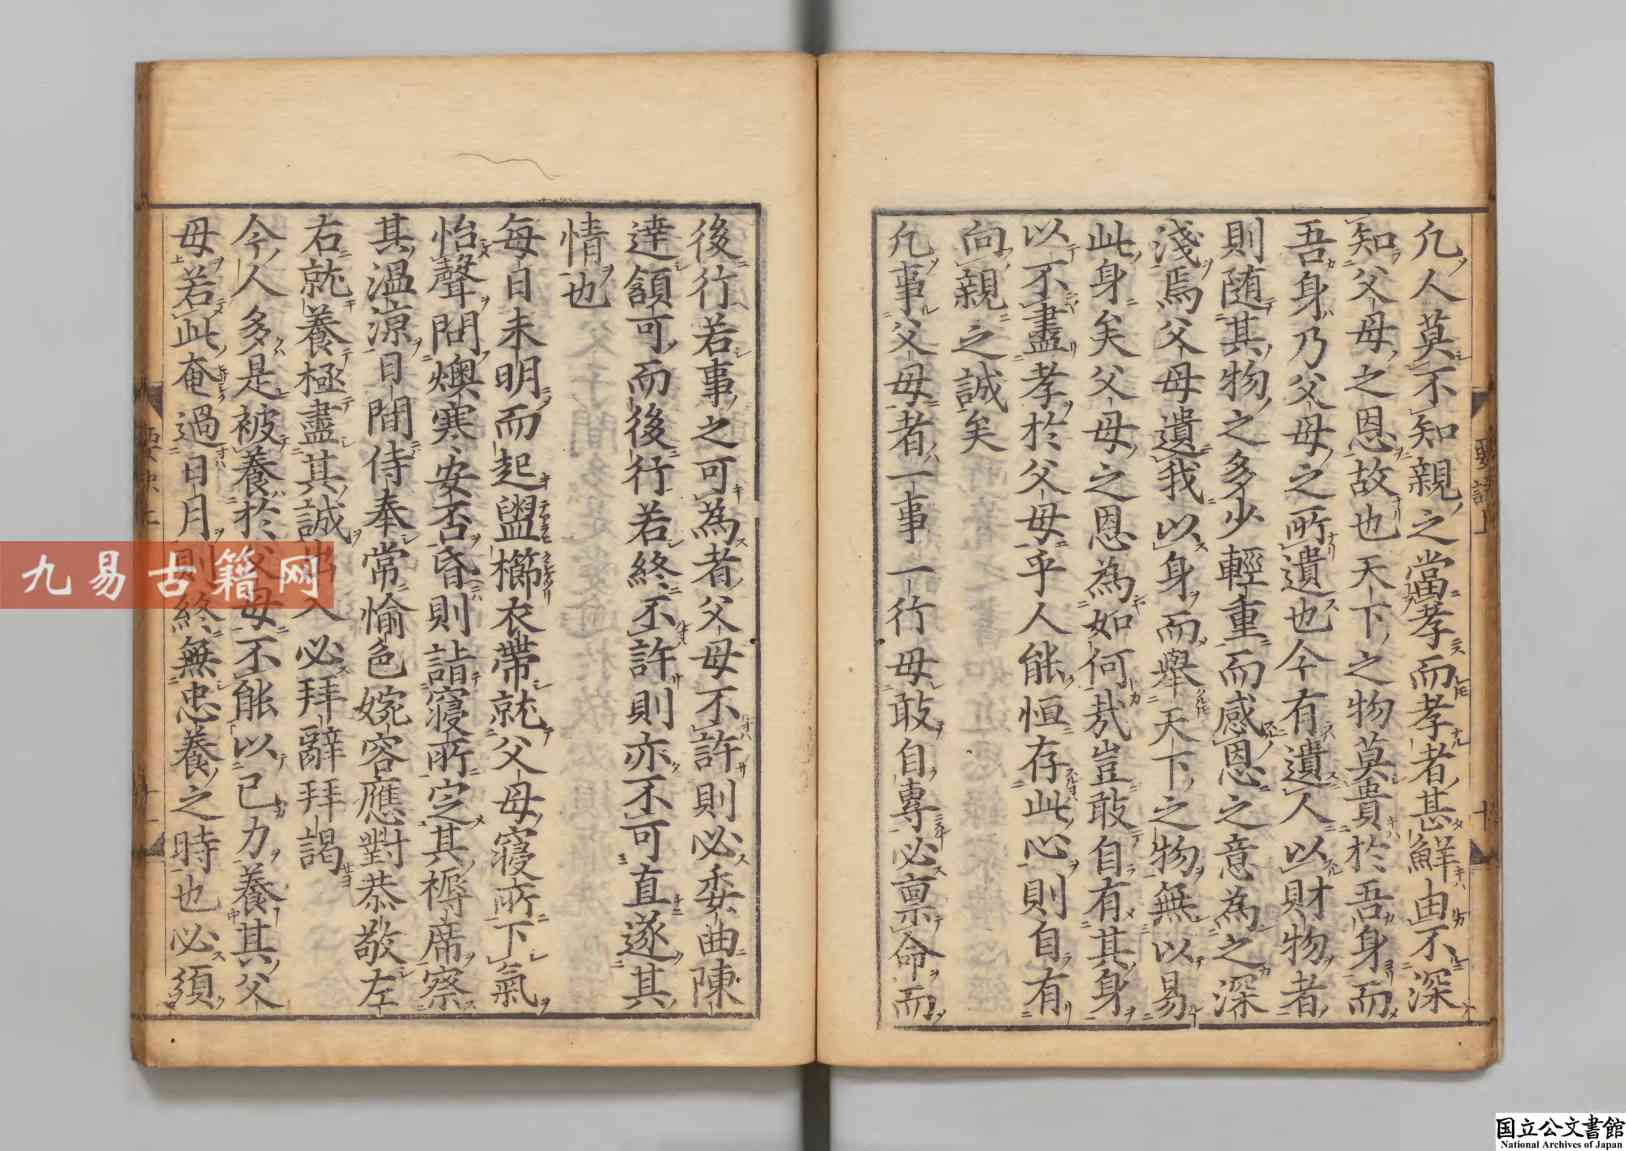 凢人莫不知親之當孝而孝者甚鮮由不深
知父母之恩故也天下之物莫貴於吾身而
吾身乃父母之所遺也今有遺人以財物者
則随其物之多少輕重而感恩之意為之深
淺焉父母遺我以身而舉天下之物無以易
此身矣父母之恩為如何㢤豈敢自有其身
以不盡孝於父母乎人能恒存此心則自有
向親之誠矣
凢事父母者一事一行毋敢自專必禀命而
後行若事之可為者父母不許則必委曲陳
達頷可而後行若終不許則亦不可直遂其
情也
每日未明而起盥櫛衣帶就父母寢所下氣
怡聲問燠寒安否昏則詣寢所定其褥席察
其温凉日間侍奉常愉色婉容應對恭敬左
右就養極盡其誠出入必拜辭拜謁
今人多是被養於父母不能以己力養其父
母若此奄過日月則終無忠養之時也必須
九易古籍网
国立公文書館
National Archives of Japan